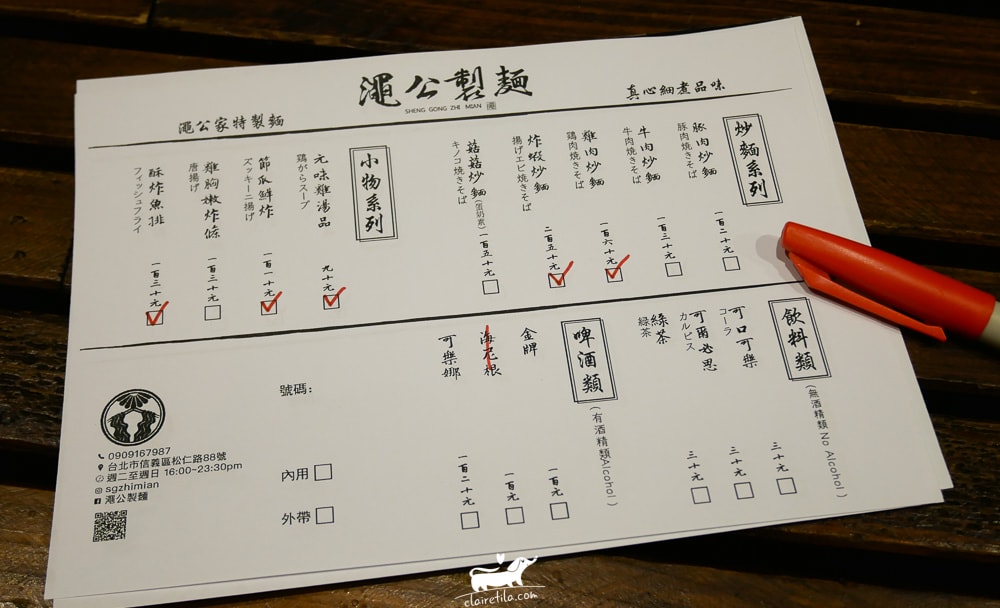 澠公製麵
SHENG GONG ZHI MIAN
澠公家特製麵
真心細煮品味
炒麵系列
豚肉炒麵
豚肉焼きそば
一百二十元
牛肉炒麵
牛肉焼きそば
一百三十元
雞肉炒麵
鶏肉焼きそば
一百六十元
炸蝦炒麵
揚げエビ焼きそば
二百五十元
菇菇炒麵(蛋奶素)
キノコ焼きそば
一百五十元
小物系列
元味雞湯品
鶏がらスープ
九十元
節瓜鮮炸
ズッキーニ揚げ
一百一十元
雞胸嫩炸條
唐揚げ
一百三十元
酥炸魚排
フィッシュフライ
一百三十元
飲料類
(無酒精類 No Alcohol)
可口可樂
コーラ
三十元
可爾必思
カルピス
三十元
綠茶
緑茶
三十元
啤酒類
(有酒精類Alcohol)
金牌
一百元
海尼根
一百元
可樂娜
一百二十元
號碼:
內用
外帶
0909167987
台北市信義區松仁路88號
週二至週日 16:00~23:30pm
sgzhimian
澠公製麵
clairetila.com